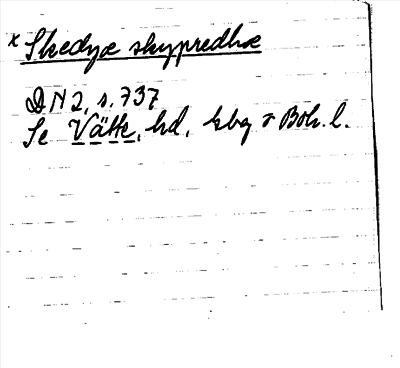 x Skedyæ skypredhæ
DN 2, s. 737
Se Vätte, hd, kbg o Boh. l.